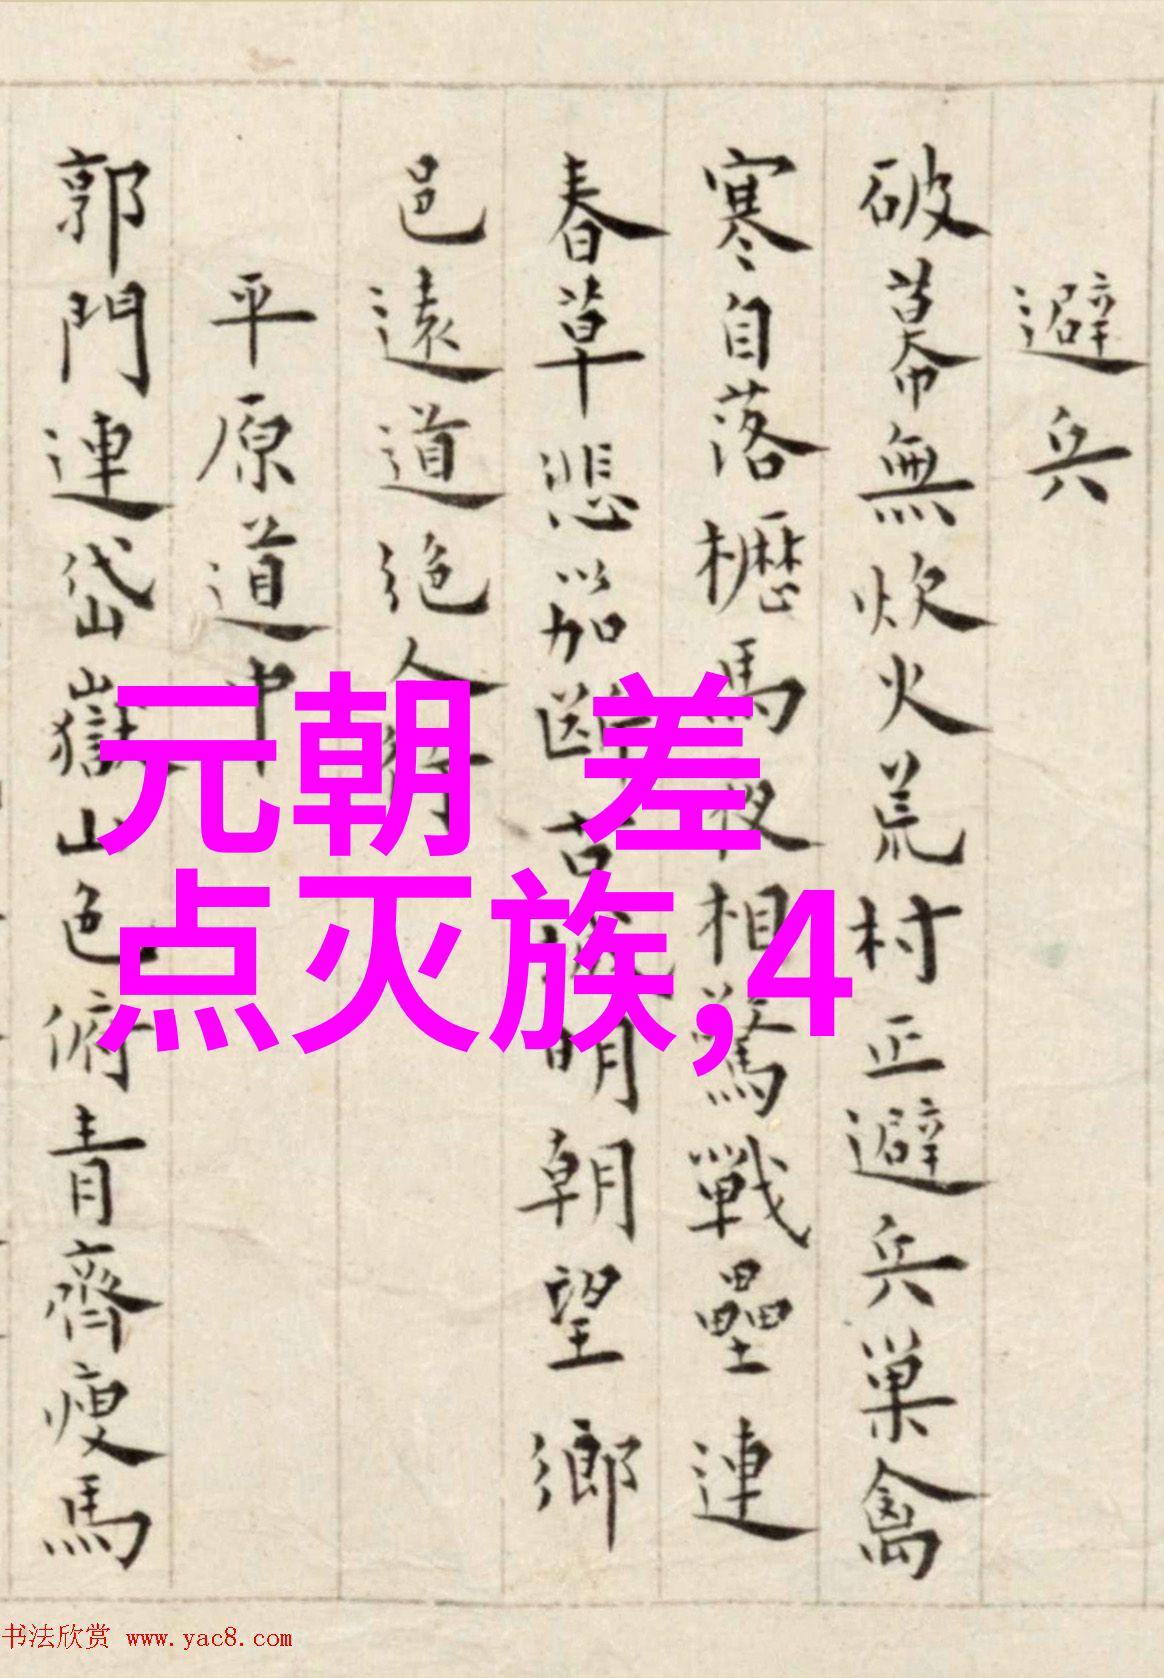 避兵
破幕無炊火荒村正避兵巢禽
寒自落櫪馬夜相驚戰壘連
春草悲笳斷古城明朝望鄉
邑遠道絕人行
平原道中
郭門連岱嶽山色俯青齊瘦馬
元朝 差
点灭族,4
书法欣赏 www.yac8.com